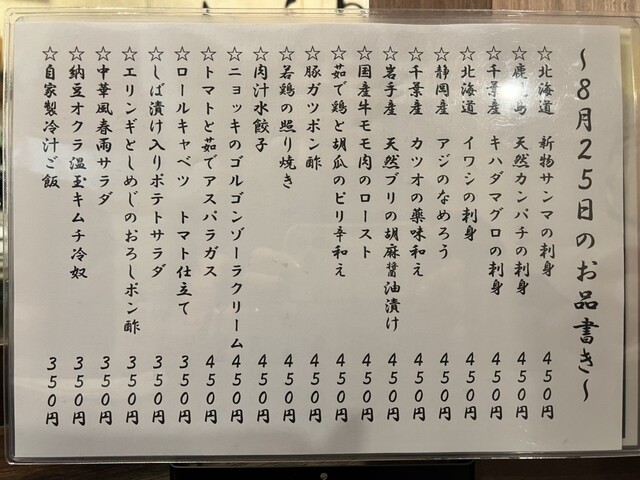 ～８月２５日のお品書き～
☆北海道　新物サンマの刺身　４５０円
☆鹿児島　天然カンパチの刺身　４５０円
☆千葉産　キハダマグロの刺身　４５０円
☆北海道　イワシの刺身　４５０円
☆静岡産　アジのなめろう　４５０円
☆千葉産　カツオの薬味和え　４５０円
☆岩手産　天然ブリの胡麻醤油漬け　４５０円
☆国産牛モモ肉のロースト　４５０円
☆茹で鶏と胡瓜のピリ辛和え　４５０円
☆豚ガツポン酢　４５０円
☆若鶏の照り焼き　４５０円
☆肉汁水餃子　４５０円
☆ニョッキのゴルゴンゾーラクリーム　４５０円
☆トマトと茹でアスパラガス　４５０円
☆ロールキャベツ　トマト仕立て　３５０円
☆しば漬け入りポテトサラダ　３５０円
☆エリンギとしめじのおろしポン酢　３５０円
☆中華風春雨サラダ　３５０円
☆納豆オクラ温玉キムチ冷奴　３５０円
☆自家製冷汁ご飯　３５０円